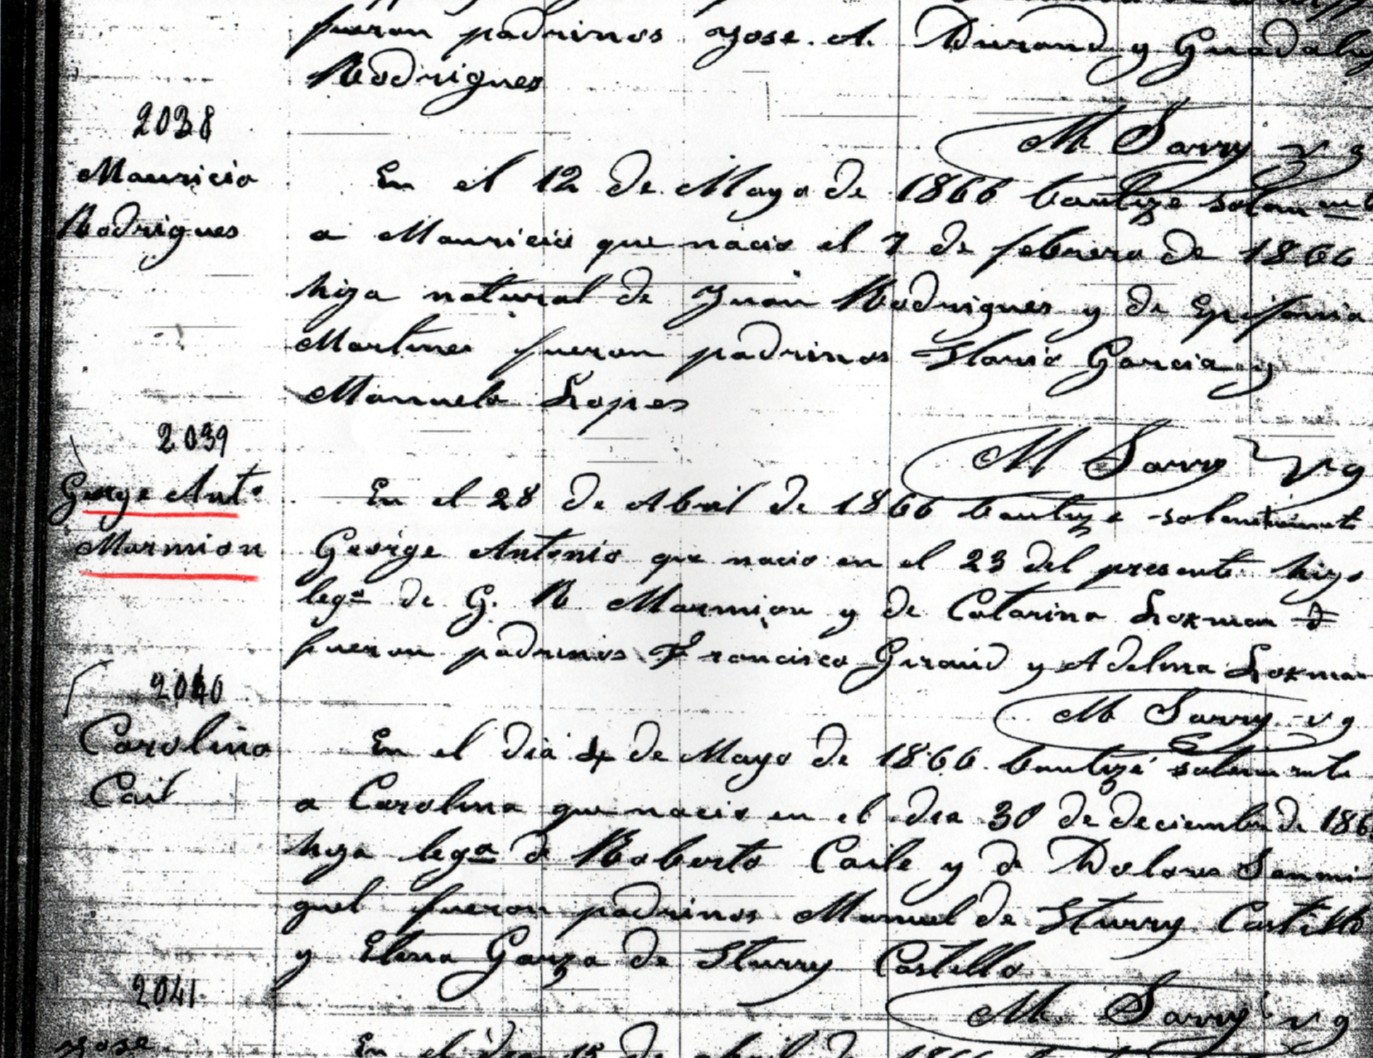 fueron padrinos Jose. A. Durand y Guadalu
Rodrigues
2038
M Sarry v g
Mauricio
Rodrigues
En el 12 de Mayo de 1866 bautize solem
a Mauricio que nacio el 7 de febrero de 1866
hijo natural de Juan Rodrigues y de Epifania
Martines fueron padrinos Flavio Garcia y
Manuela Lopes
2039
M Sarry v g
George Anto
Marmion
En el 28 de Abril de 1866 bautize solemnemente
George Antonio que nacio en el 23 del presente hijo
lego de G. R Marmion y de Catarina Lokman &
fueron padrinos Francisco Giraud y Adelina Lokman
2040
M Sarry v g
Carolina
Cail
En el dia 4 de Mayo de 1866 bautizé solemente
a Carolina que nacio en el dia 30 de deciembre de 186
hija lega d Roberto Caile y d Dolores Sanmi
guel fueron padrinos Manuel de Sturry Castillo
y Elena Garza de Sturry Castello
2041
M. Sarry v g
Jose
En el dia 15 de abril de 1866